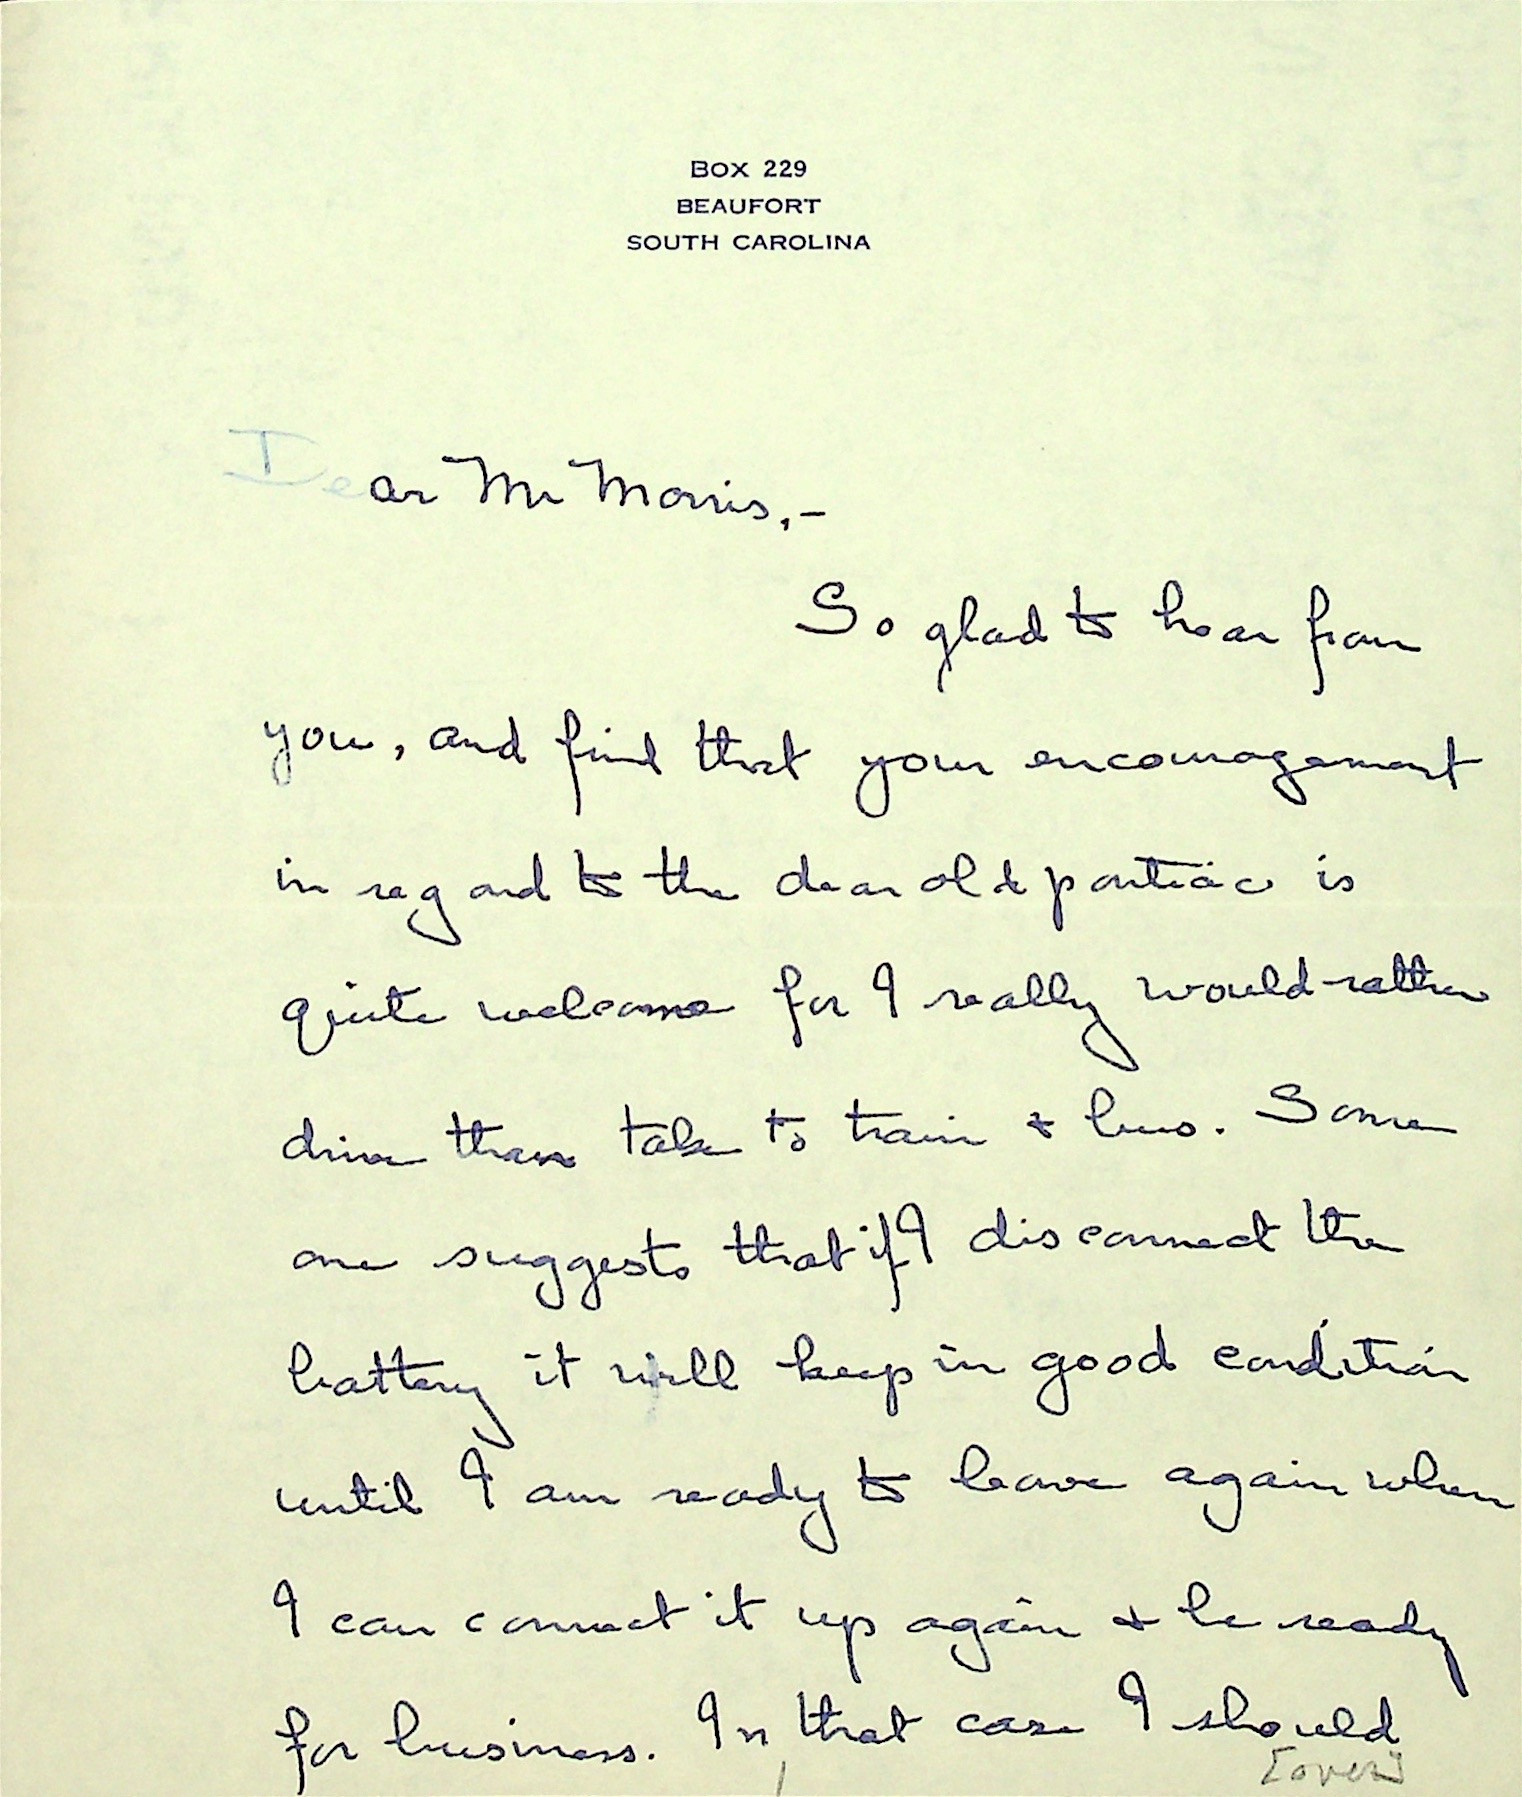 BOX 229
BEAUFORT
SOUTH CAROLINA
Dear Mr Morris,-
So glad to hear from
you, and find that your encouragement
in regard to the dear old pontiac is
quite welcome for I really would rather
drive than take to train & bus. Some
one suggests that if I disconnect the
battery it will keep in good condition
until I am ready to leave again when
I can connect it up again & be ready
for business. In that case I should
[over]